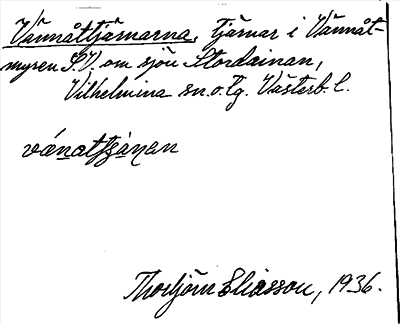 Vännåttjärnarna, tjärnar i Vännåt-
myren S.V. om sjön Stordainan,
Vilhelmina sn.o.tg. Västerb. l.
vánattjánan
Torbjörn Eliasson, 1936.